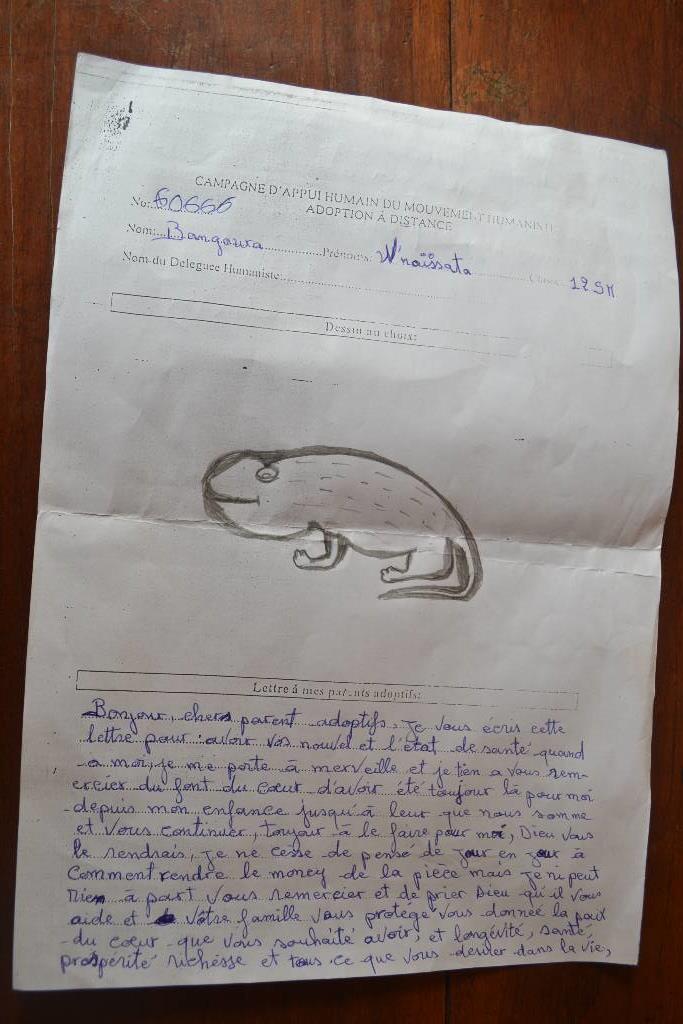 CAMPAGNE D'APPUI HUMAIN DU MOUVEMENT HUMANISTE
ADOPTION À DISTANCE
No: 60666
Nom: Bangoura Prénoms: N'naïssata Classe: 12 SM
Nom du Deleguee Humaniste:
Dessin au choix:
Lettre à mes parents adoptifs:
Bonjour, chers parent adoptifs, je vous écris cette
lettre pour avoir vos nouvel et l'état de santé quand
a moi, je me porte à merveille et je tien a vous rem-
ercier du font du cœur d'avoir été toujour là pour moi
depuis mon enfance jusqu'à leur que nous somme
et vous continuer, toujour à le faire pour moi, Dieu vous
le rendrais, je ne cesse de pensé de jour en jour à
comment rendre le money de la pièce mais je ni peut
rien à part vous remercier et de prier Dieu qu'il vous
aide et votre famille vous protégé vous donnee la paix
du cœur que vous souhaité avoir, et longévité, santé,
prospérité richesse et tous ce que vous desirer dans la vie,